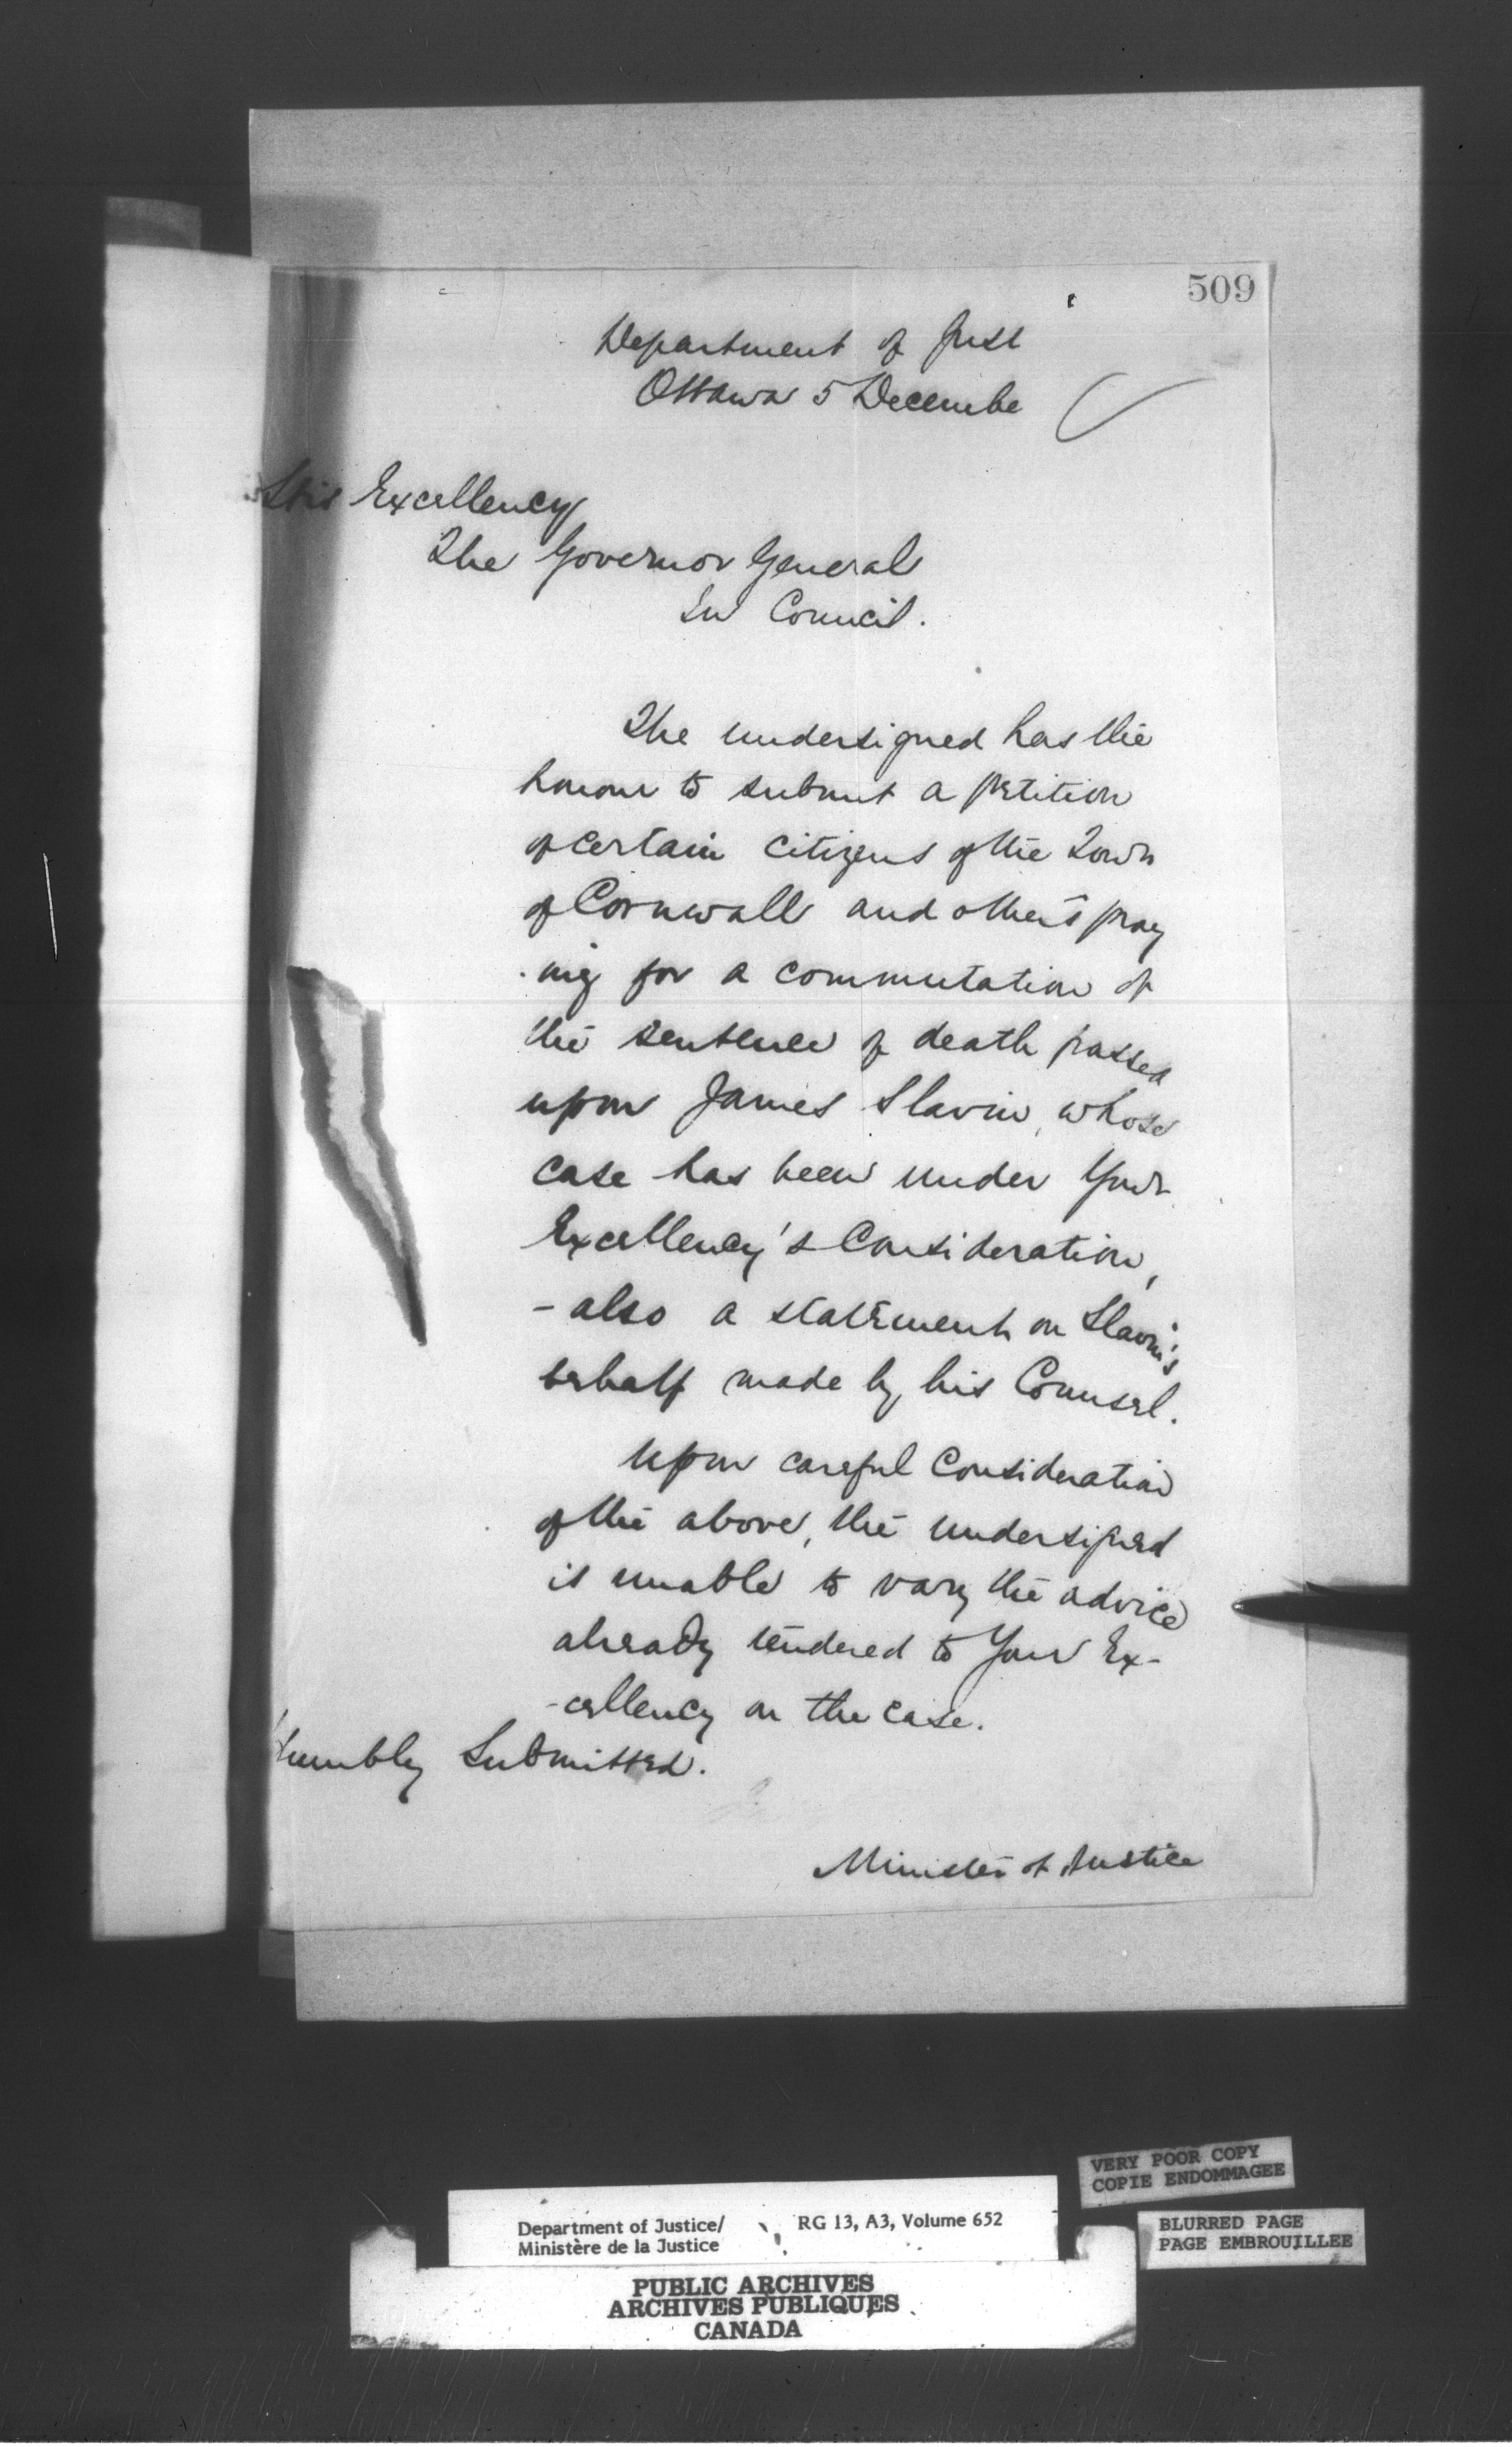 509
Department of Just
Ottawa 5 Decembe
His Excellency
The Governor General
In Council.
The undersigned has the
honour to submit a petition
of certain citizens of the Town
of Cornwall and others pray
-ing for a commutation of
the sentence of death passed
upon James Slavin, whose
case has been under Your
Excellency's Consideration,
- also a statement on Slavin's
behalf made by his Counsel.
Upon careful Consideration
of the above, the undersigned
is unable to vary the advice
already tendered to Your Ex-
-cellency on the case.
Humbly Submitted.
Minister of Justice
VERY POOR COPY
COPIE ENDOMMAGEE
Department of Justice/
Ministère de la Justice
RG 13, A3, Volume 652
BLURRED PAGE
PAGE EMBROUILLEE
PUBLIC ARCHIVES
ARCHIVES PUBLIQUES
CANADA